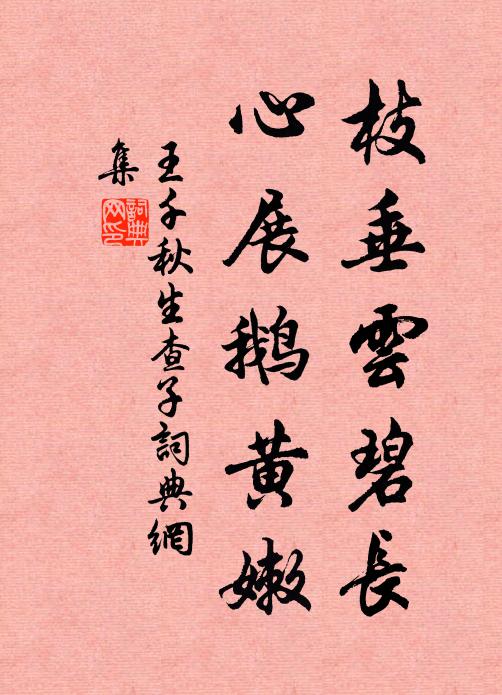 枝垂雲碧長
心展鵝黃嫩
王千秋生查子詞典網
集
詞典網印